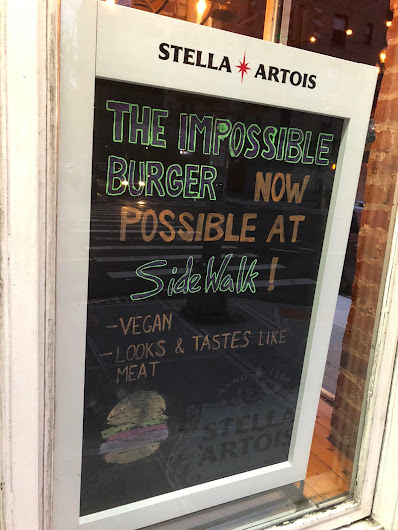 STELLA ARTOIS
THE IMPOSSIBLE
BURGER NOW
POSSIBLE AT
SideWalk!
-VEGAN
-LOOKS & TASTES LIKE
MEAT
ANNO 1366
STELLA
ARTOIS